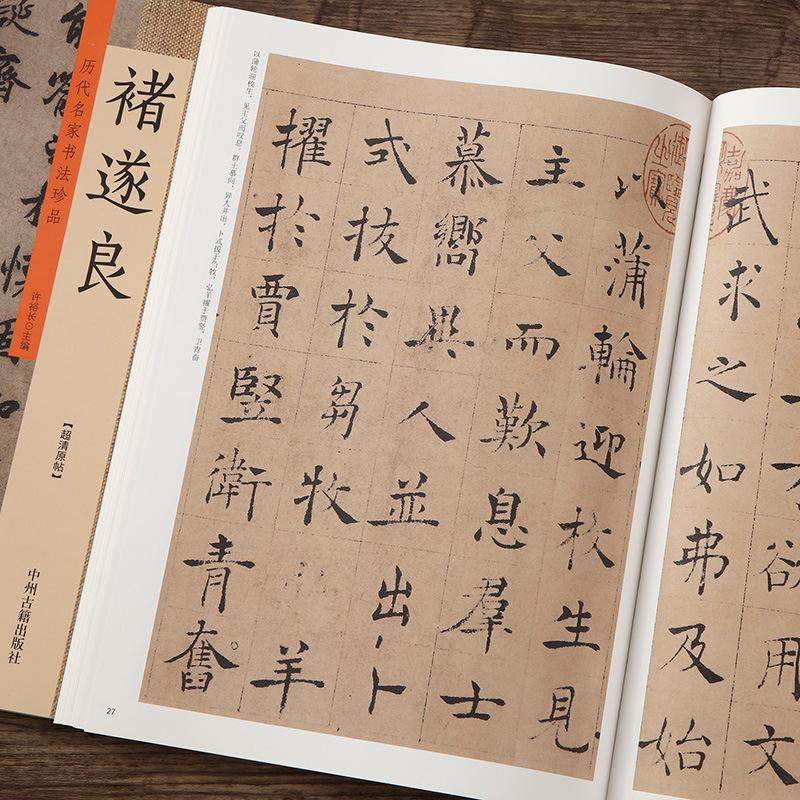 历代名家书法珍品
褚遂良
许裕长⊙主编
【超清原帖】
中州古籍出版社
欲用文
武求之如弗及始
以蒲輪迎枚生見
主父而歎息羣士
慕嚮異人並出卜
式拔於芻牧羊
擢於賈豎衛青奮
以蒲轮迎枚生，见主父而叹息。群士慕向，异人并出。卜式拔于刍牧，弘羊擢于贾竖，卫青奋
27